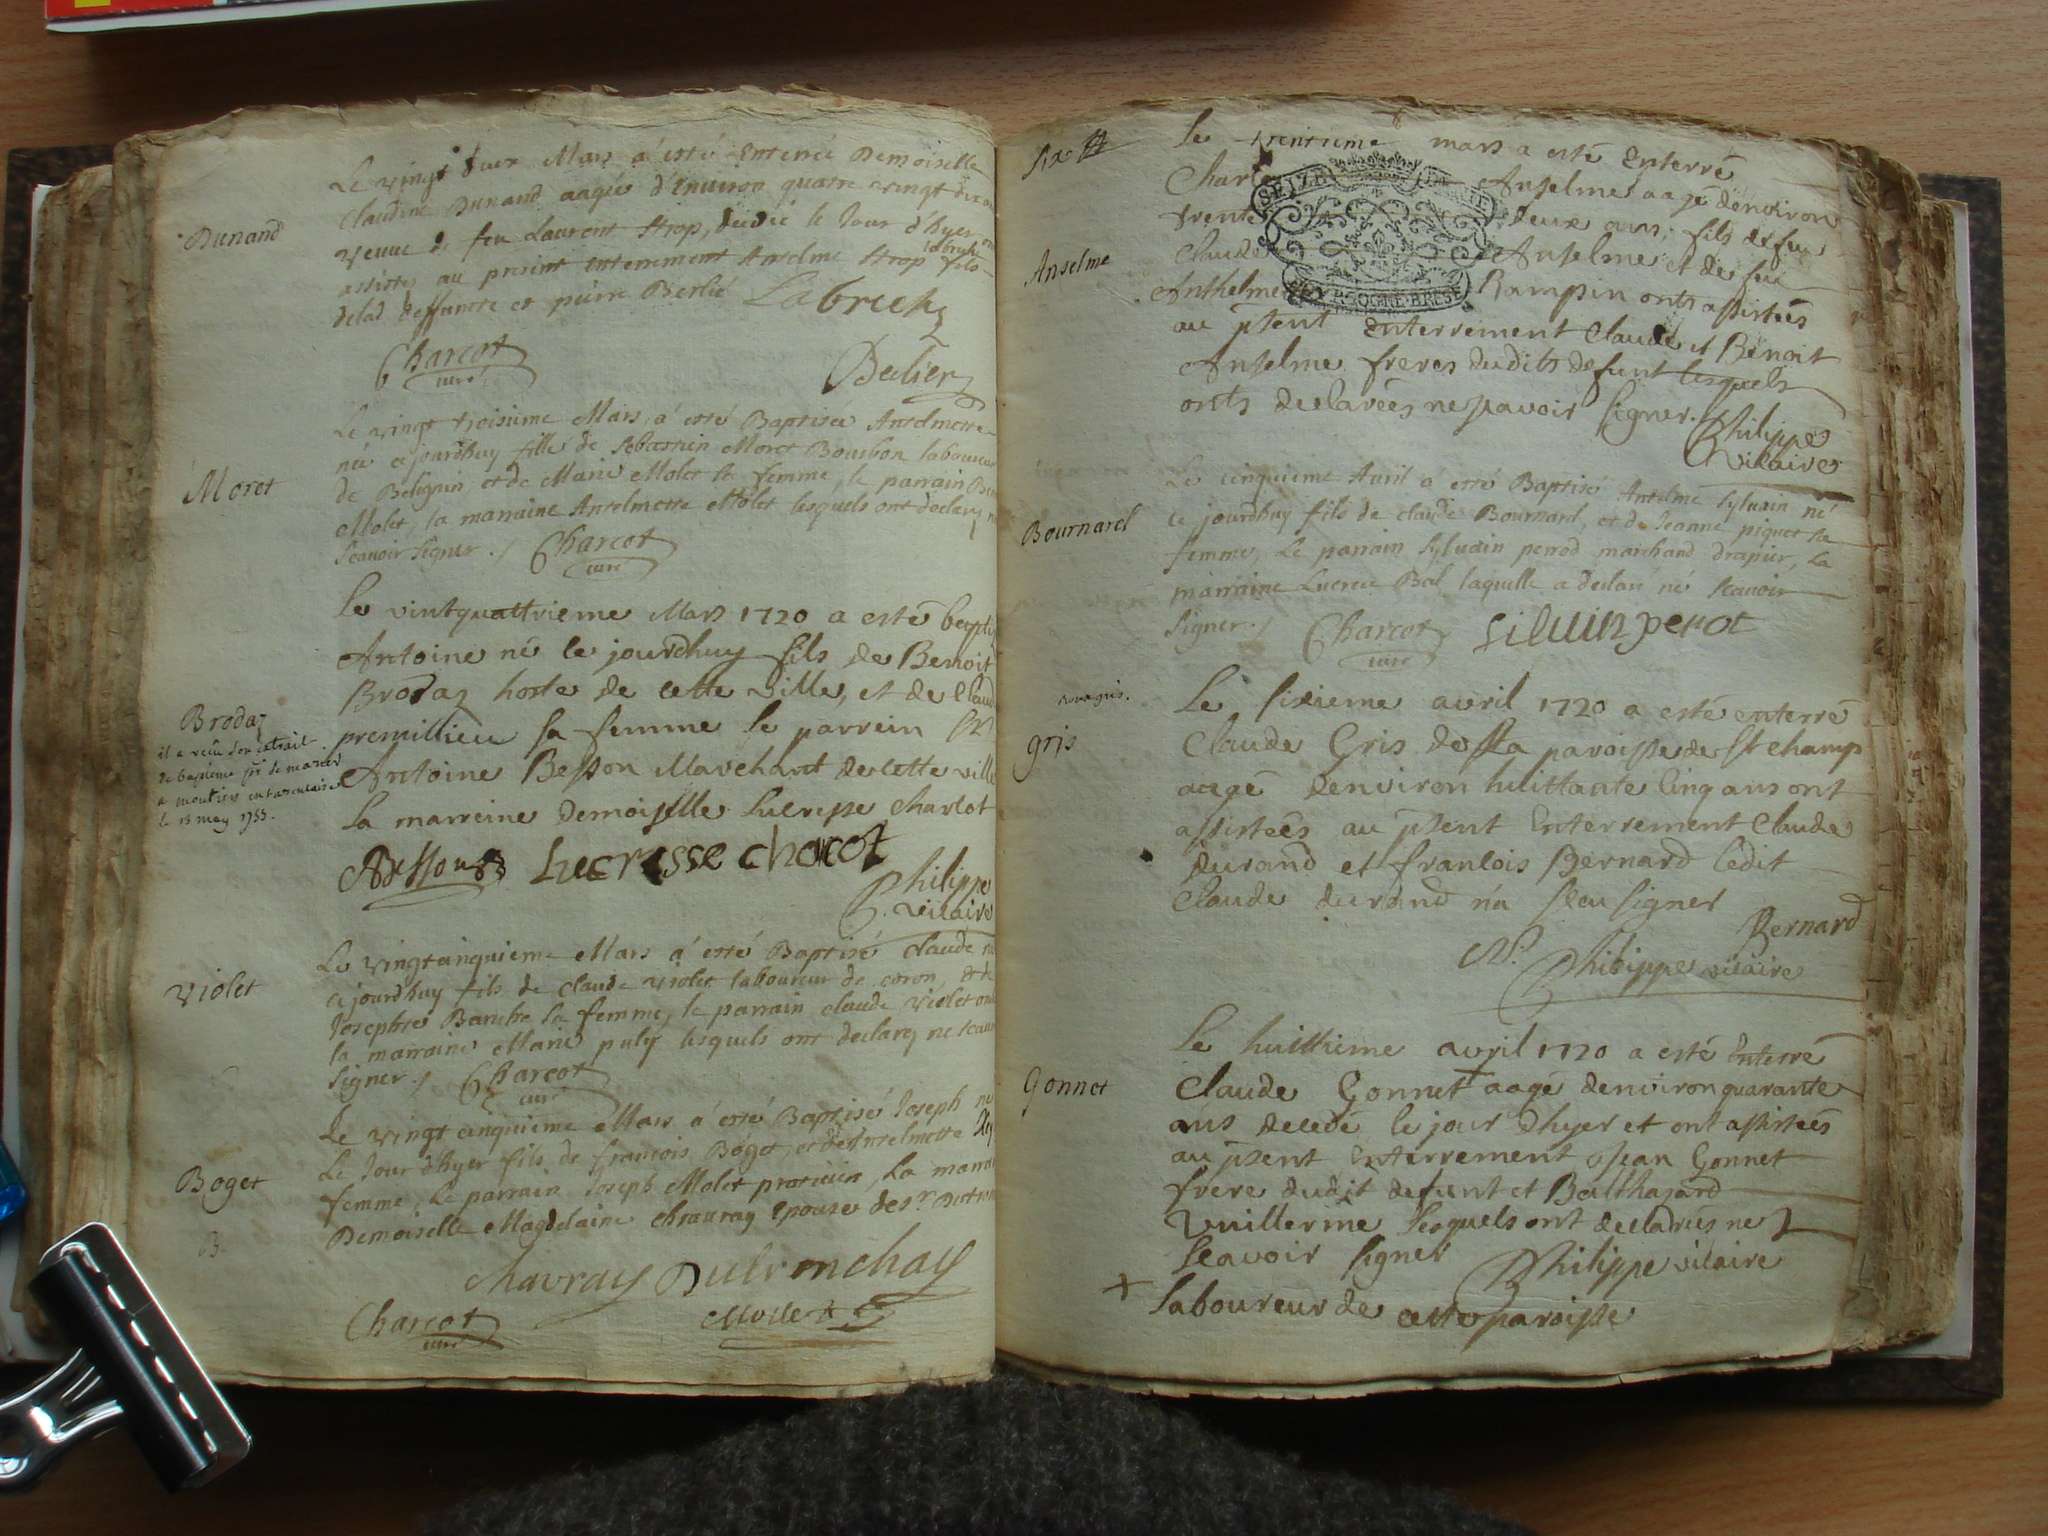 Dunand
Le vingt deux Mars a esté Enterrée Demoiselle
Claudine Dunand aagée d'Environ quatre vingt dix
veuve de feu Laurent Strop, le Jour d'hyer
assistez au present enterrement Anselme Strop fils
delad. deffuncte et pierre Berlié
Labruch
Charcot
curé
Berlier
Moret
Le vingt troisieme Mars, a esté Baptisée Antelmette
née cejourdhuy fille de Sebastien Moret Bourbon laboureur
de Belignin et de Marie Molet sa femme, le parrain
Molet, la marraine Antelmette Molet lesquels ont declarez
scavoir signer. / Charcot
curé
Brodaz
il a reçu son extrait
de baptême
a moutier en tarentaise
le 18 may 1755.
Le vintquattrieme Mars 1720 a esté baptisé
Antoine né le jourdhuy fils de Benoit
Brodaz hoste de cette ville, et de Claud
premillieu sa femme le parrein Sr
Antoine Besson Marchant de cette ville
La marreine Demoiselle Lucresse Charlot
ABesson Lucresse chorcot
Philippe
vicaire
violet
Le vingtcinquieme Mars a esté Baptisé Claude né
cejourdhuy fils de Claude violet laboureur de coron, et de
Josephte Barutre sa femme, le parrain claude violet
la marraine Marie pulij lesquels ont declarez ne scavoir
signer. / Charcot
curé
Boget
Le vingt cinquieme Mars a esté Baptisé Joseph né
Le Jour d'hyer fils de francois Boget, et d'Antelmette
femme, Le parrain Joseph Molet praticien, La marraine
Demoiselle Magdelaine chauray Epouse de sr.
chavray Dutronchay
Charcot
curé
Mollet
Six
Anselme
Le trentieme mars a esté Enterré
Charle Anselme aagé denviron
trente deux ans, fils de feu
Claude Anselme et de feu
Anthelmette Rampin onts assistées
au psent Enterrement Claude et Benoit
Anselme freres dudits defunt lesquels
onts declarées ne scavoir signer.
Philippe
vicaire
Bournard
Le cinquieme Avril a esté Baptisé Antelme Sylvain né
ce jourdhuy fils de claude Bournard, et de Jeanne piquet sa
femme, Le parrain Sylvain perrod marchand drapier, La
marraine Lucrece Bal laquelle a declaré ne scavoir
signer. / Charcot silvin perot
curé
gris
Le sixieme avril 1720 a esté enterré
Claude Gris de la paroisse de St champ
aagé denviron huittante cinq ans ont
assistées au psent Enterrement Claude
durand et francois Bernard ledit
Claude durand n'a sceu signer
Bernard
Philippe vicaire
Gonnet
Le huittieme avril 1720 a esté Enterré
Claude Gonnet + aagé denviron quarante
ans decedé le jour d'hyer et ont assistées
au psent Enterrement Jean Gonnet
frere dudit defunt et Balthazard
Vuillerme lesquels ont declarés ne
scavoir signer Philippe vicaire
+ laboureur de cette paroisse